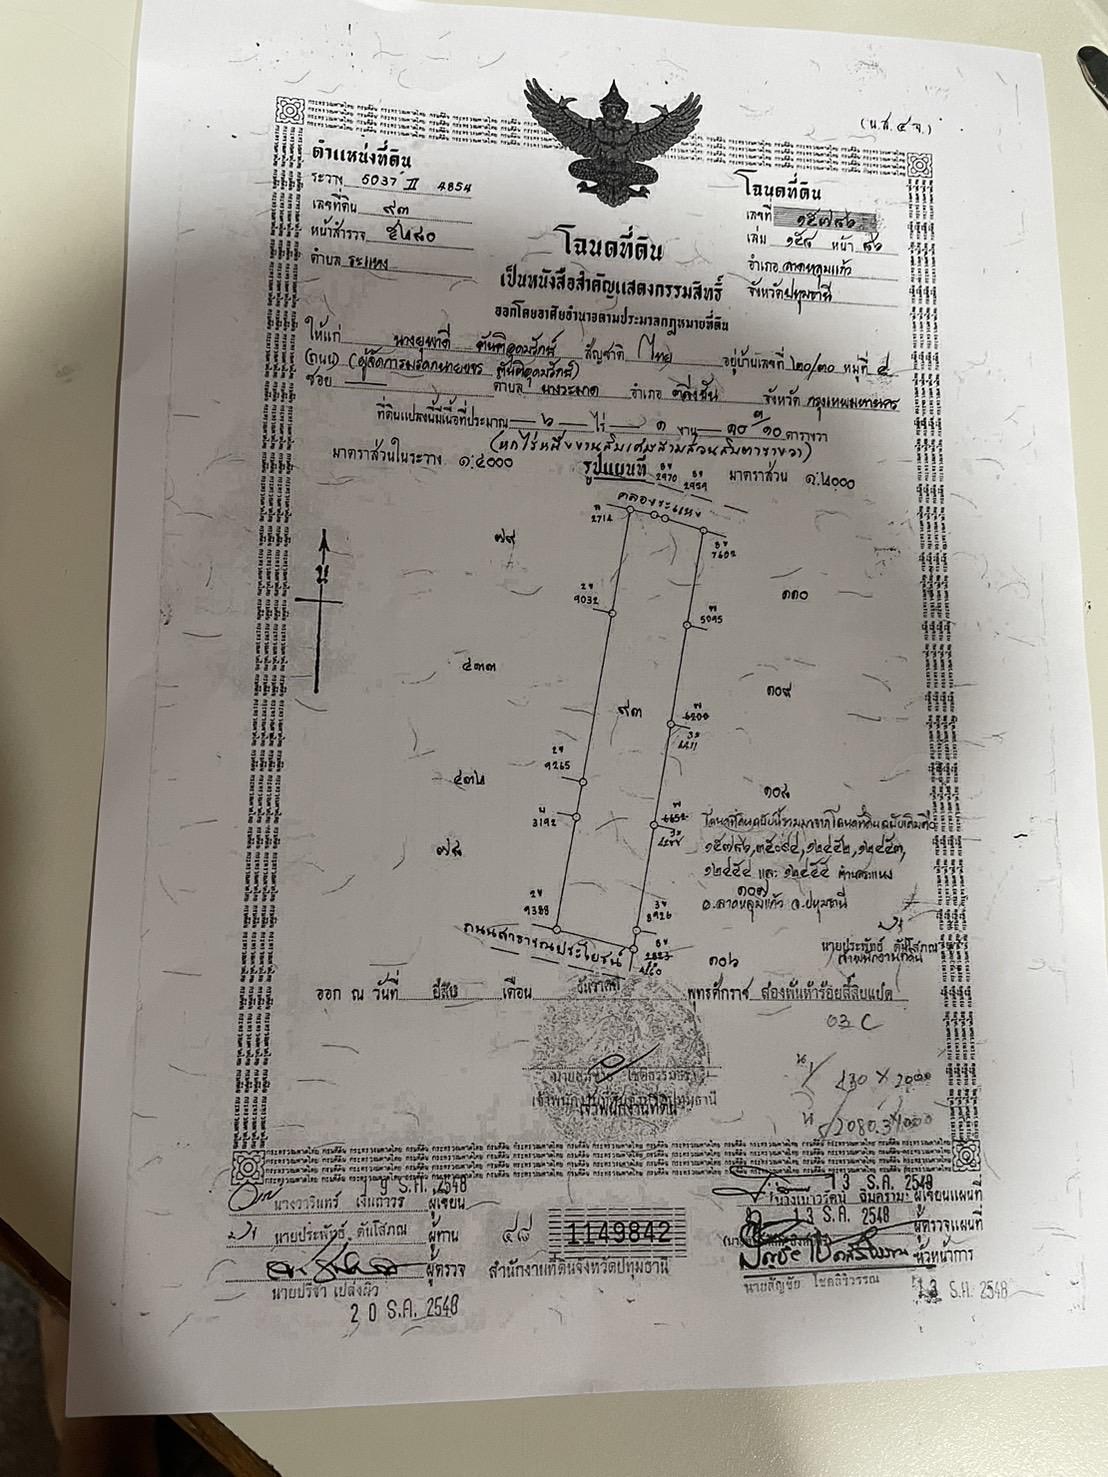 (น.ส. ๔ จ.)
ตำแหน่งที่ดิน
ระวาง 5037 II 4854
เลขที่ดิน ๙๓
หน้าสำรวจ
ตำบล ระแหง
โฉนดที่ดิน
เลขที่ ๑๕๗๘๖
เล่ม ๑๕๘ หน้า ๘๖
อำเภอ ลาดหลุมแก้ว
จังหวัด ปทุมธานี
โฉนดที่ดิน
เป็นหนังสือสำคัญแสดงกรรมสิทธิ์
ออกโดยอาศัยอำนาจตามประมวลกฎหมายที่ดิน
ให้แก่ นางยุพาดี ตันติอุดมรักษ์ สัญชาติ ไทย อยู่บ้านเลขที่ ๒๐/๓๐ หมู่ที่ ๔
(ถนน) (ผู้จัดการมรดกนายขจร ตันติอุดมรักษ์)
ซอย — ตำบล บางระมาด อำเภอ ตลิ่งชัน จังหวัด กรุงเทพมหานคร
ที่ดินแปลงนี้มีเนื้อที่ประมาณ ๖ ไร่ ๑ งาน ๑๐ ๓/๑๐ ตารางวา
(หกไร่หนึ่งงานสิบเศษสามส่วนสิบตารางวา)
มาตราส่วนในระวาง ๑:๔๐๐๐ รูปแผนที่ มาตราส่วน ๑:๒๐๐๐
2970
2959
คลองระแหง
2714
7602
๗๙
น
9032
5095
๑๑๐
๔๓๓
๑๐๙
๙๓
6200
4411
9265
๔๓๒
3192
๑๐๘
6652
โฉนดที่ดินฉบับนี้รวมมาจากโฉนดที่ดินฉบับเดิมคือ
๗๘
๑๕๗๘๖, ๓๕๐๙๔, ๑๒๔๕๒, ๑๒๔๕๓,
๑๒๔๕๔ และ ๑๒๔๕๕ ตำบลระแหง
๑๐๗
อ.ลาดหลุมแก้ว จ.ปทุมธานี
9388
8926
ถนนสาธารณประโยชน์
2823
4260
๑๐๖
นายประพัทธ์ ตันโสภณ
เจ้าพนักงานที่ดิน
ออก ณ วันที่ ยี่สิบ เดือน ธันวาคม พุทธศักราช สองพันห้าร้อยสี่สิบแปด
03 C
เจ้าพนักงานที่ดินจังหวัดปทุมธานี
เจ้าพนักงานที่ดิน
9 ธ.ค. 2548
นางวารินทร์ เงินถาวร ผู้เขียน
นายประพัทธ์ ตันโสภณ ผู้ทาน
ผู้ตรวจ
นายปรีชา เปล่งผิว
20 ธ.ค. 2548
๔๘ 1149842
สำนักงานที่ดินจังหวัดปทุมธานี
13 ธ.ค. 2548
ผู้เขียนแผนที่
13 ธ.ค. 2548
ผู้ตรวจแผนที่
หัวหน้าการ
นายสัญชัย โชคสิริวรรณ
13 ธ.ค. 2548